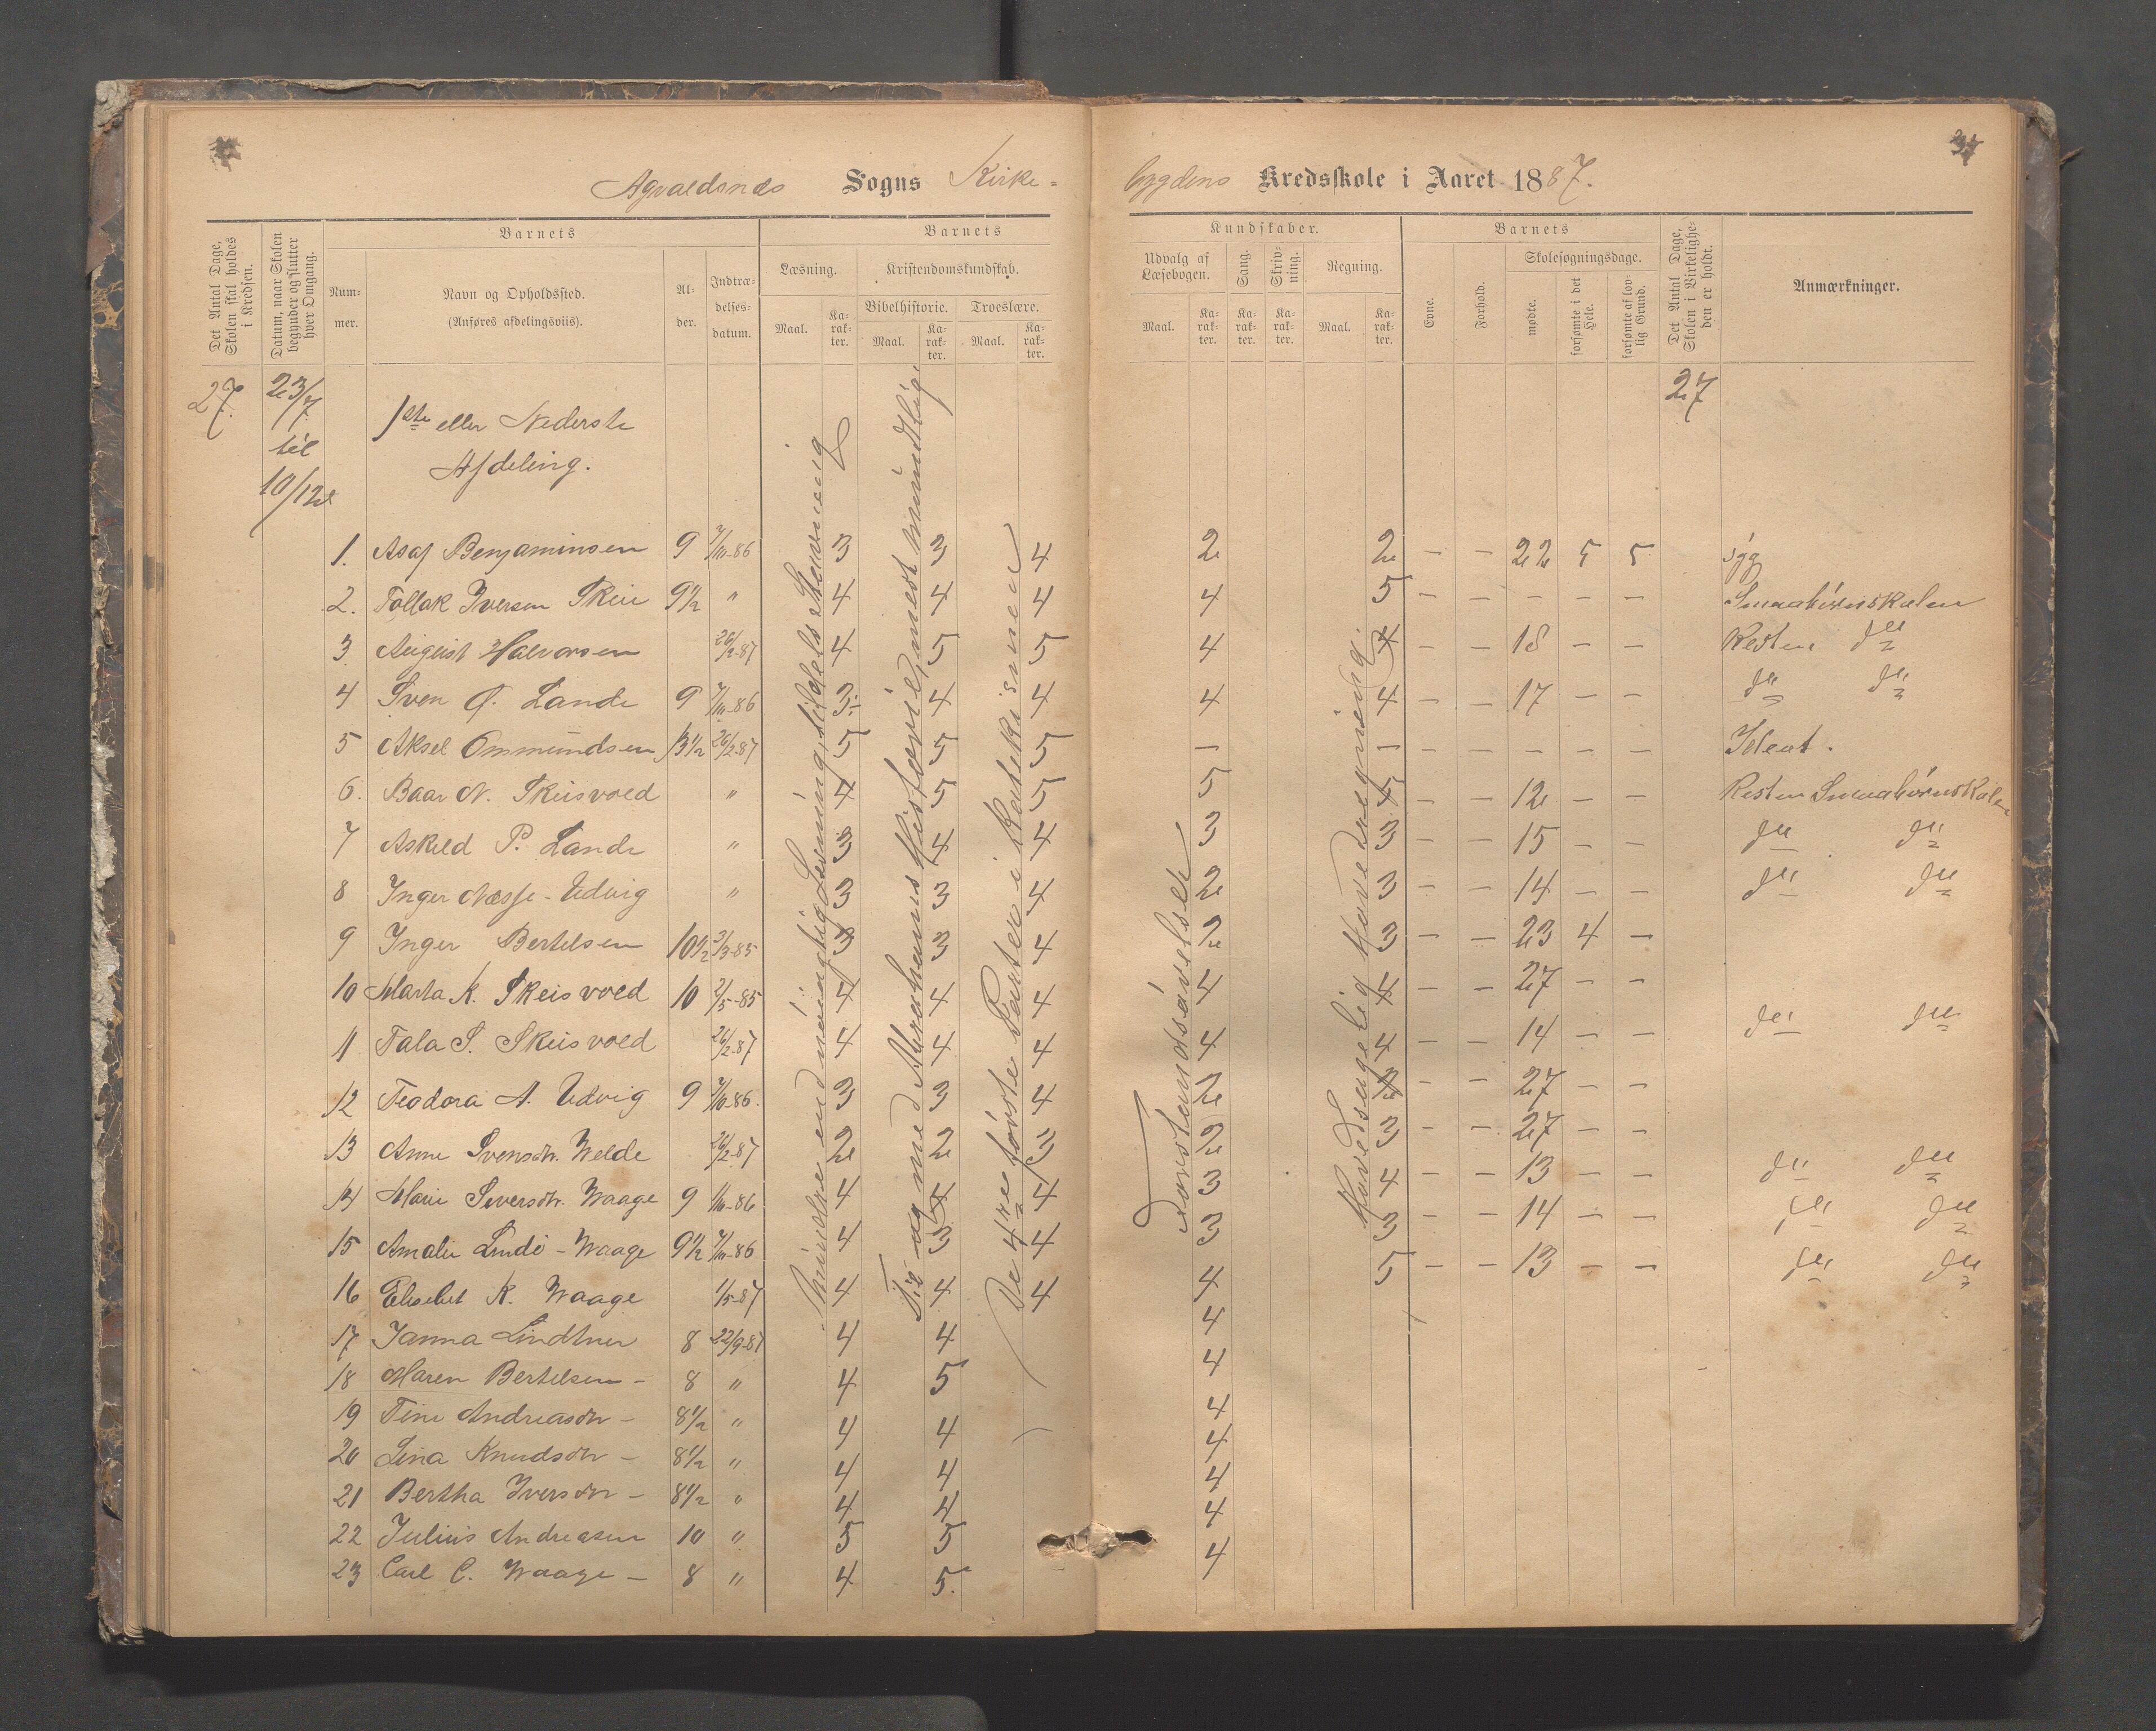 Agvaldsnæs Sogns Kirke=
bygdens Kredsskole i Aaret 1887.
Det Antal Dage, Skolen skal holdes i Kredsen.
Datum, naar Skolen begynder og slutter hver Omgang.
Barnets
Num-mer.
Navn og Opholdssted.
(Anføres afdelingsviis).
Al-der.
Indtræ-delses-datum.
Barnets
Læsning.
Maal.
Ka-rak-ter.
Kristendomskundskab.
Bibelhistorie.
Maal.
Ka-rak-ter.
Troeslære.
Maal.
Ka-rak-ter.
Kundskaber.
Udvalg af Læsebogen.
Maal.
Ka-rak-ter.
Sang.
Ka-rak-ter.
Skriv-ning.
Ka-rak-ter.
Regning.
Maal.
Ka-rak-ter.
Barnets
Evne.
Forhold.
Skolesøgningsdage.
mødte.
forsømte i det Hele.
forsømte af lov-lig Grund.
Det Antal Dage, Skolen i Virkelighe-den er holdt.
Anmærkninger.
27. 23/7 til 10/12
1ste eller Nederste
Afdeling.
27
Mindre end nöiagtig Læsning, tildels Stavning
Til og med Abrahams Historie, mest mundtlig.
De 4re første Parter i Katekismen
Forstandsøvelser
Hovedsagelig Hovedregning.
1. Asaf Benjaminsen 9 7/10-86 3 3 4 2 2 – – 22 5 5 syg
2. Tollak Iversen Skeie 9 1/2 " 4 4 4 4 5 – – – – – Smaabörnskolen
3 August Halvorsen 26/2-87 4 5 5 4 4 – – 18 – – Resten do
4 Sven O. Lande 9 7/10-86 3 4 4 4 4 – – 17 – – do do
5 Aksel Ommundsen 13 1/2 26/2-87 5 5 5 – – – – – – – Ideot.
6. Baar N. Skeisvold " 4 5 5 5 5 – – 12 – – Resten Smaabörnskolen
7 Askild P. Lande " 3 4 4 3 3 – – 15 – – do do
8 Inger Næsse - Udvig " 3 3 4 2 3 – – 14 – – do do
9 Inger Bertelsen 10 1/2 3/3-85 3 3 4 2 3 – – 23 4 –
10 Marta K. Skeisvold 10 2/5-85 4 4 4 4 4 – – 27 – –
11 Tala S. Skeisvold 26/2-87 4 4 4 4 4 – – 14 – – do do
12 Teodora A. Udvig 9 7/10-86. 3 3 4 2 2 – – 27 – –
13 Anne Svensdtr. Welde 26/2-87 2 2 3 2 3 – – 27 – –
14 Marie Seversdtr. Waage 9 1/10-86 4 4 4 3 4 – – 13 – – do do
15 Amalie Lindö - Waage 9 1/2 7/10-86 4 3 4 3 3 – – 14 – – do do
16 Elisebet K. Waage 1/5-87 4 4 4 4 5 – – 13 – – do do
17 Janna Lindtner 8 22/9-87 4 4 4
18 Maren Bertelsen – 8 " 4 5 4
19 Tine Andreasdtr – 8 1/2 " 4 4 4
20 Lina Knudsdtr – 8 1/2 " 4 4 4
21 Bertha Iversdtr – 8 1/2 " 4 4 4
22 Julius Andreasen 10 " 5 5 4
23 Carl C. Waage – 8 " 4 5. 4